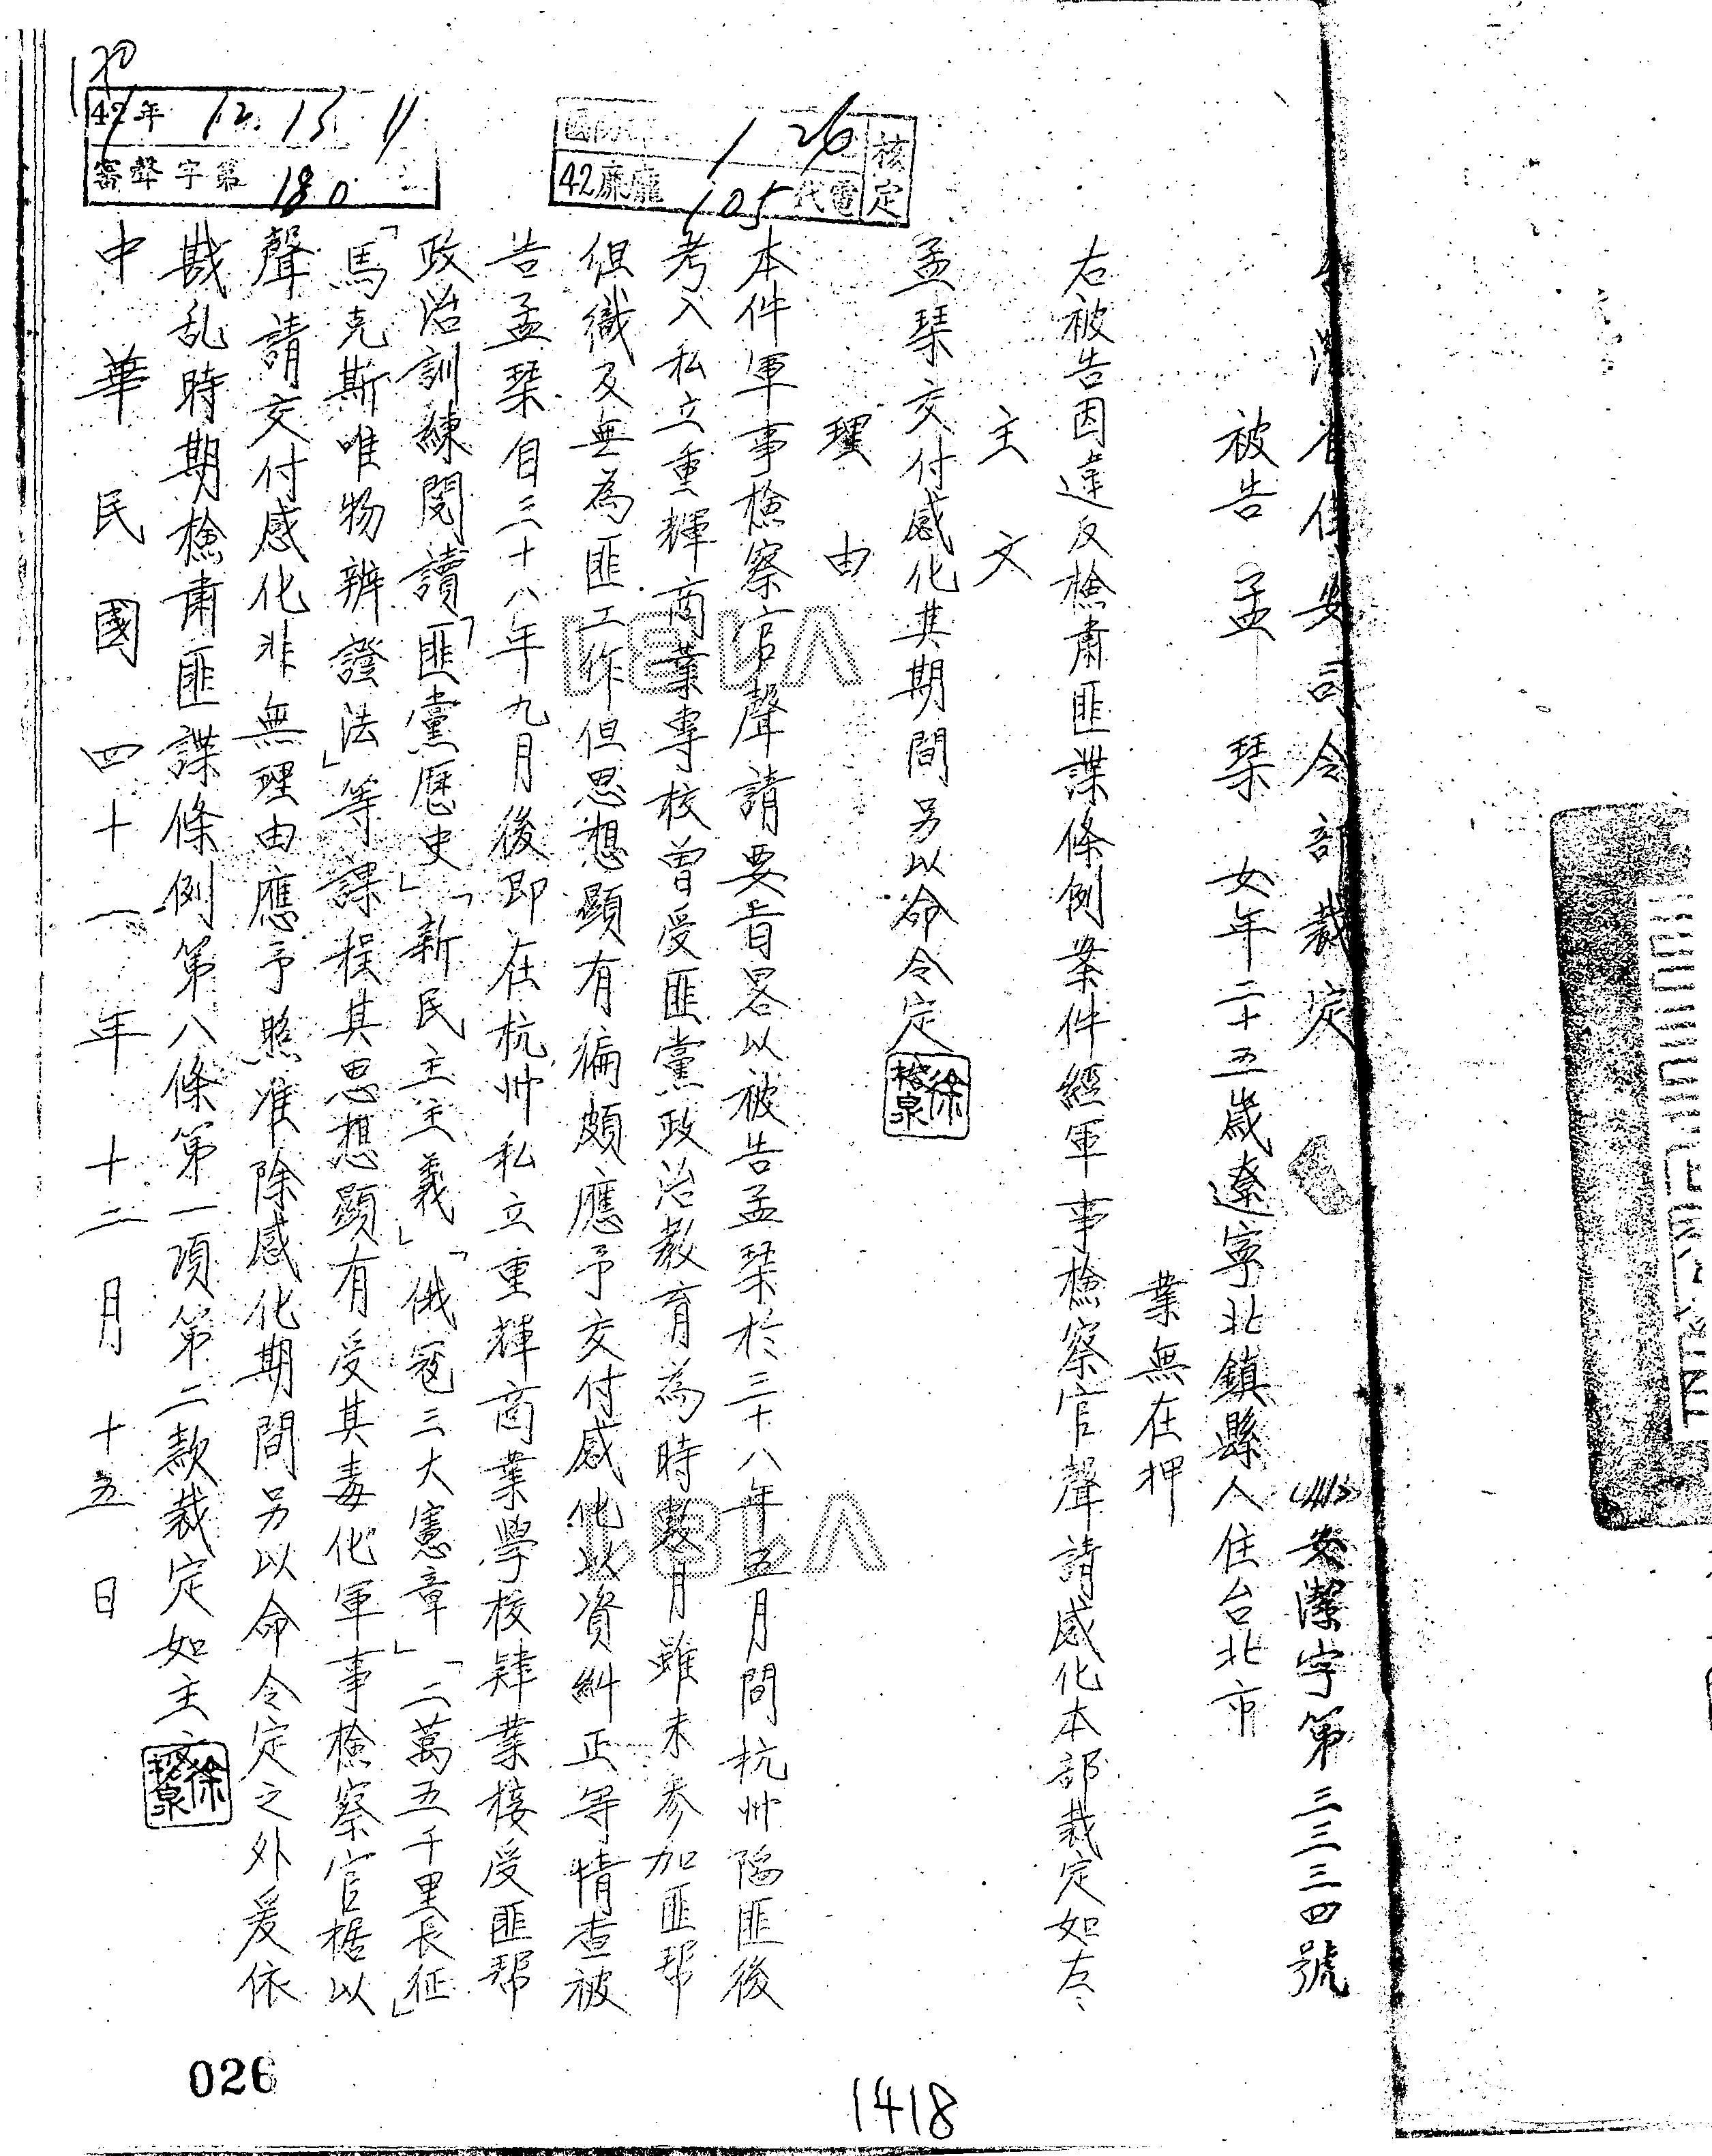 台灣省保安司令部裁定 安潔字第三三三四號
被告 孟琹 女年二十五歲遼寧北鎮縣人住台北市
業無在押
右被告因違反檢肅匪諜條例案件經軍事檢察官聲請感化本部裁定如左
主文
孟琹交付感化其期間另以命令定
理由
本件軍事檢察官聲請要旨畧以被告孟琹於三十八年五月間杭州陷匪後
考入私立重輝商業專校曾受匪黨政治教育為時數月雖未參加匪幫
組織及無為匪工作但思想顯有徧頗應予交付感化以資糾正等情查被
告孟琹自三十八年九月後即在杭州私立重輝商業學校肄業接受匪幫
政治訓練閱讀「匪黨歷史」「新民主主義」「俄寇三大憲章」「二萬五千里長征」
「馬克斯唯物辨證法」等課程其思想顯有受其毒化軍事檢察官據以
聲請交付感化非無理由應予照准除感化期間另以命令定之外爰依
戡乱時期檢肅匪諜條例第八條第一項第二款裁定如主文
中華民國四十一年十二月十五日
核定
1 26
42廉龐 105 代電
42年 12.15
審聲字第 180
026
1418